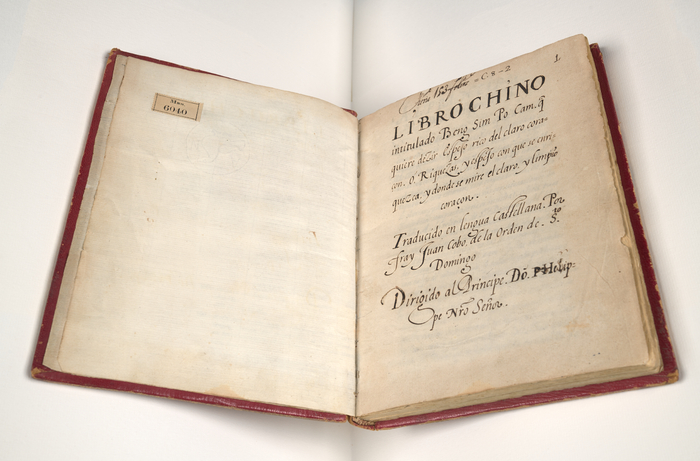 Mss.
6040
C-8-2
1
LIBRO CHINO
intitulado Beng Sim Po Cam. q̃
quiere dezir Espejo rico del claro cora-
çon. o Riquezas, y espejo con que se enri-
quezca, y donde se mire el claro, y limpio
coraçon.
Traducido en lengua Castellana. Por
fray Juan Cobo. de la Orden de. S.to
Domingo
Dirigido al Principe. Dõ. Philip-
pe Nro Señor.